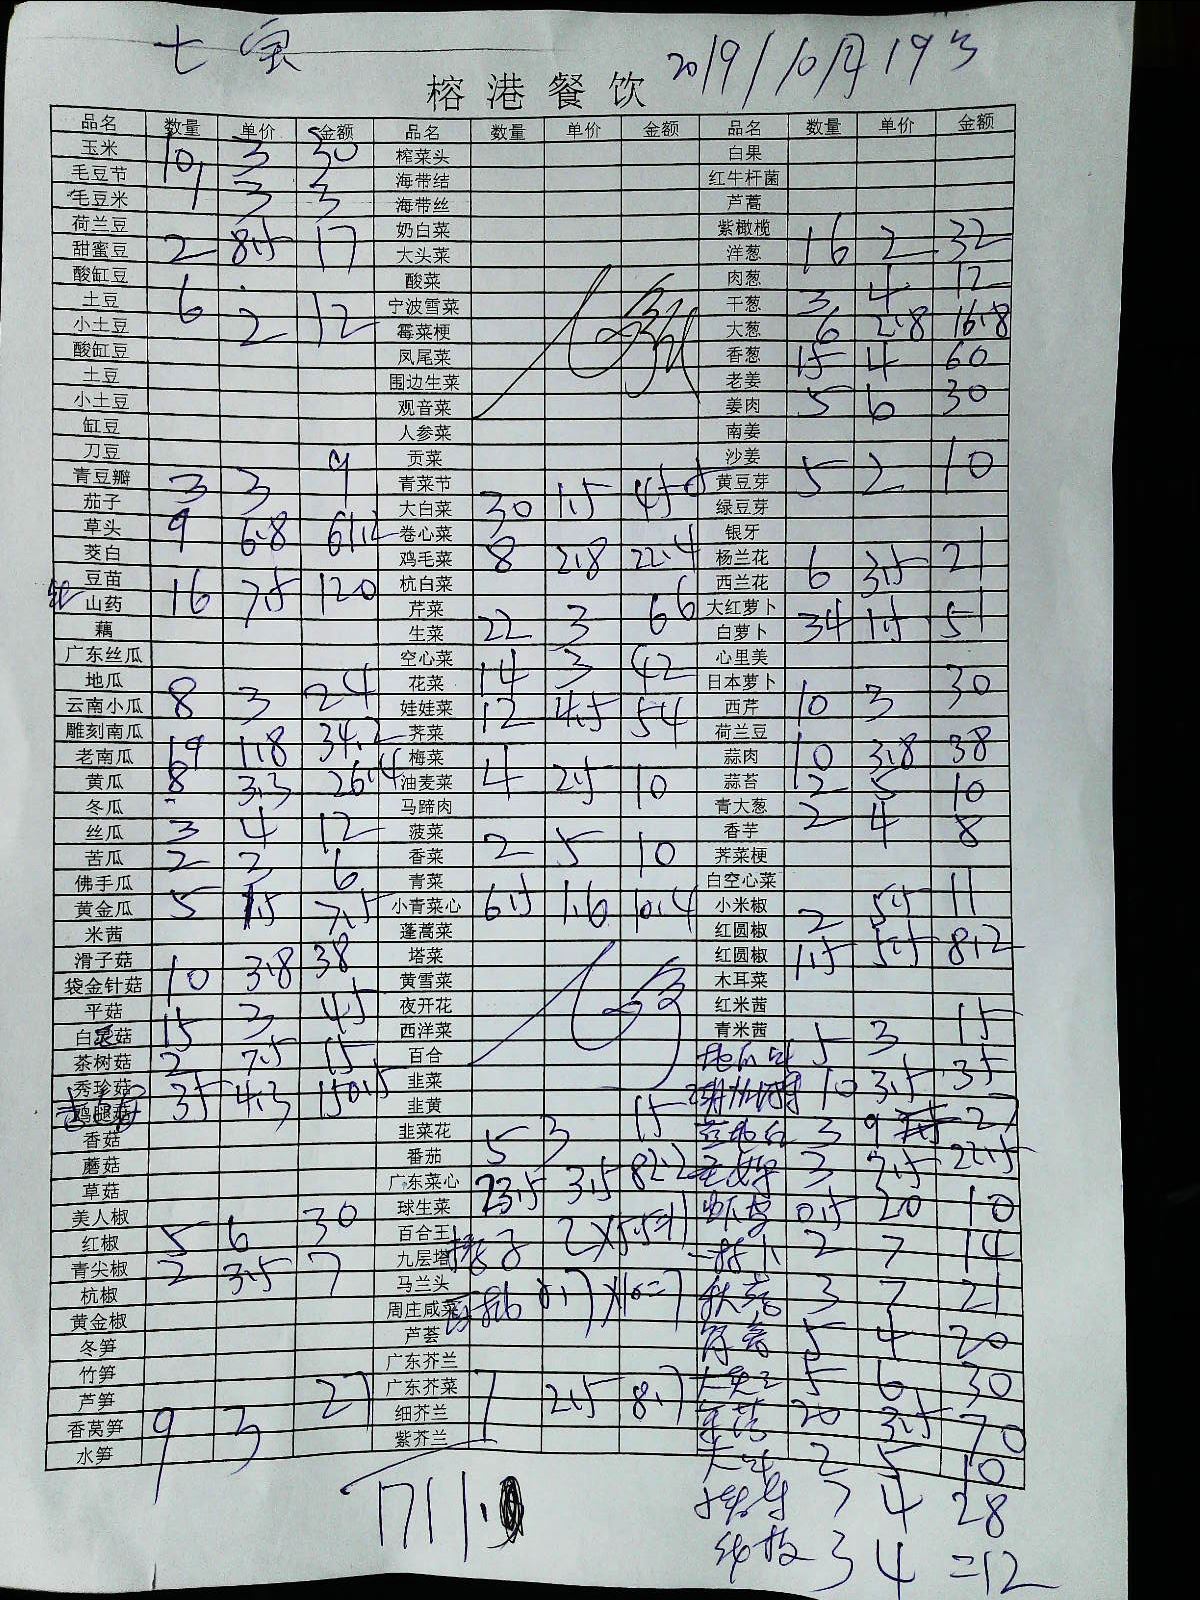 七宝 2019/10月19号
榕港餐饮
品名 数量 单价 金额 品名 数量 单价 金额 品名 数量 单价 金额
玉米 10 3 30 榨菜头 白果
毛豆节 1 3 3 海带结 红牛杆菌
毛豆米 海带丝 芦蒿
荷兰豆 2 8.5 17 奶白菜 紫橄榄 16 2 32
甜蜜豆 大头菜 洋葱
酸缸豆 6 2 12 酸菜 肉葱 3 4 12
土豆 宁波雪菜 干葱
小土豆 霉菜梗 大葱 6 2.8 16.8
酸缸豆 凤尾菜 香葱 15 4 60
土豆 围边生菜 老姜
小土豆 观音菜 姜肉 5 6 30
缸豆 人参菜 南姜
刀豆 贡菜 沙姜
青豆瓣 3 3 9 青菜节 黄豆芽 5 2 10
茄子 大白菜 30 1.5 45 绿豆芽
草头 9 6.8 61.2 卷心菜 银牙
茭白 鸡毛菜 8 2.8 22.4 杨兰花
豆苗 16 7.5 120 杭白菜 西兰花 6 3.5 21
山药 芹菜 大红萝卜
藕 生菜 22 3 66 白萝卜 34 1.5 51
广东丝瓜 空心菜 14 3 42 心里美
地瓜 8 3 24 花菜 日本萝卜
云南小瓜 娃娃菜 12 4.5 54 西芹 10 3 30
雕刻南瓜 荠菜 荷兰豆
老南瓜 19 1.8 34.2 梅菜 蒜肉 10 3.8 38
黄瓜 8 3.3 26.4 油麦菜 4 2.5 10 蒜苔 2 5 10
冬瓜 马蹄肉 青大葱 2 4 8
丝瓜 3 4 12 菠菜 香芋
苦瓜 2 3 6 香菜 2 5 10 荠菜梗
佛手瓜 青菜 白空心菜
黄金瓜 5 1.5 7.5 小青菜心 6.5 1.6 10.4 小米椒 2 5.5 11
米茜 蓬蒿菜 红圆椒
滑子菇 塔菜 红圆椒 1.5 5.5 8.2
袋金针菇 10 3.8 38 黄雪菜 木耳菜
平菇 夜开花 红米茜
白菇 15 3 45 西洋菜 青米茜
茶树菇 2 7.5 15 百合 5 3 15
秀珍菇 35 4.3 150.5 韭菜 10 3.5 35
鸡腿菇 韭黄 3 9 27
香菇 韭菜花 5 3 15
蘑菇 番茄 3 7.5 22.5
草菇 广东菜心 23.5 3.5 82.2 0.5 20 10
美人椒 球生菜
红椒 5 6 30 百合王 2×5.5=11 2 7 14
青尖椒 2 3.5 7 九层塔
杭椒 马兰头 0.7×10=7 秋葵 3 7 21
黄金椒 周庄咸菜
冬笋 芦荟 5 4 20
竹笋 广东芥兰
芦笋 广东芥菜 2.5 8.7 5 6 30
香莴笋 9 3 27 细芥兰 20 3.5 70
水笋 紫芥兰 2 5 10
7 4 28
3 4 =12
1711.0